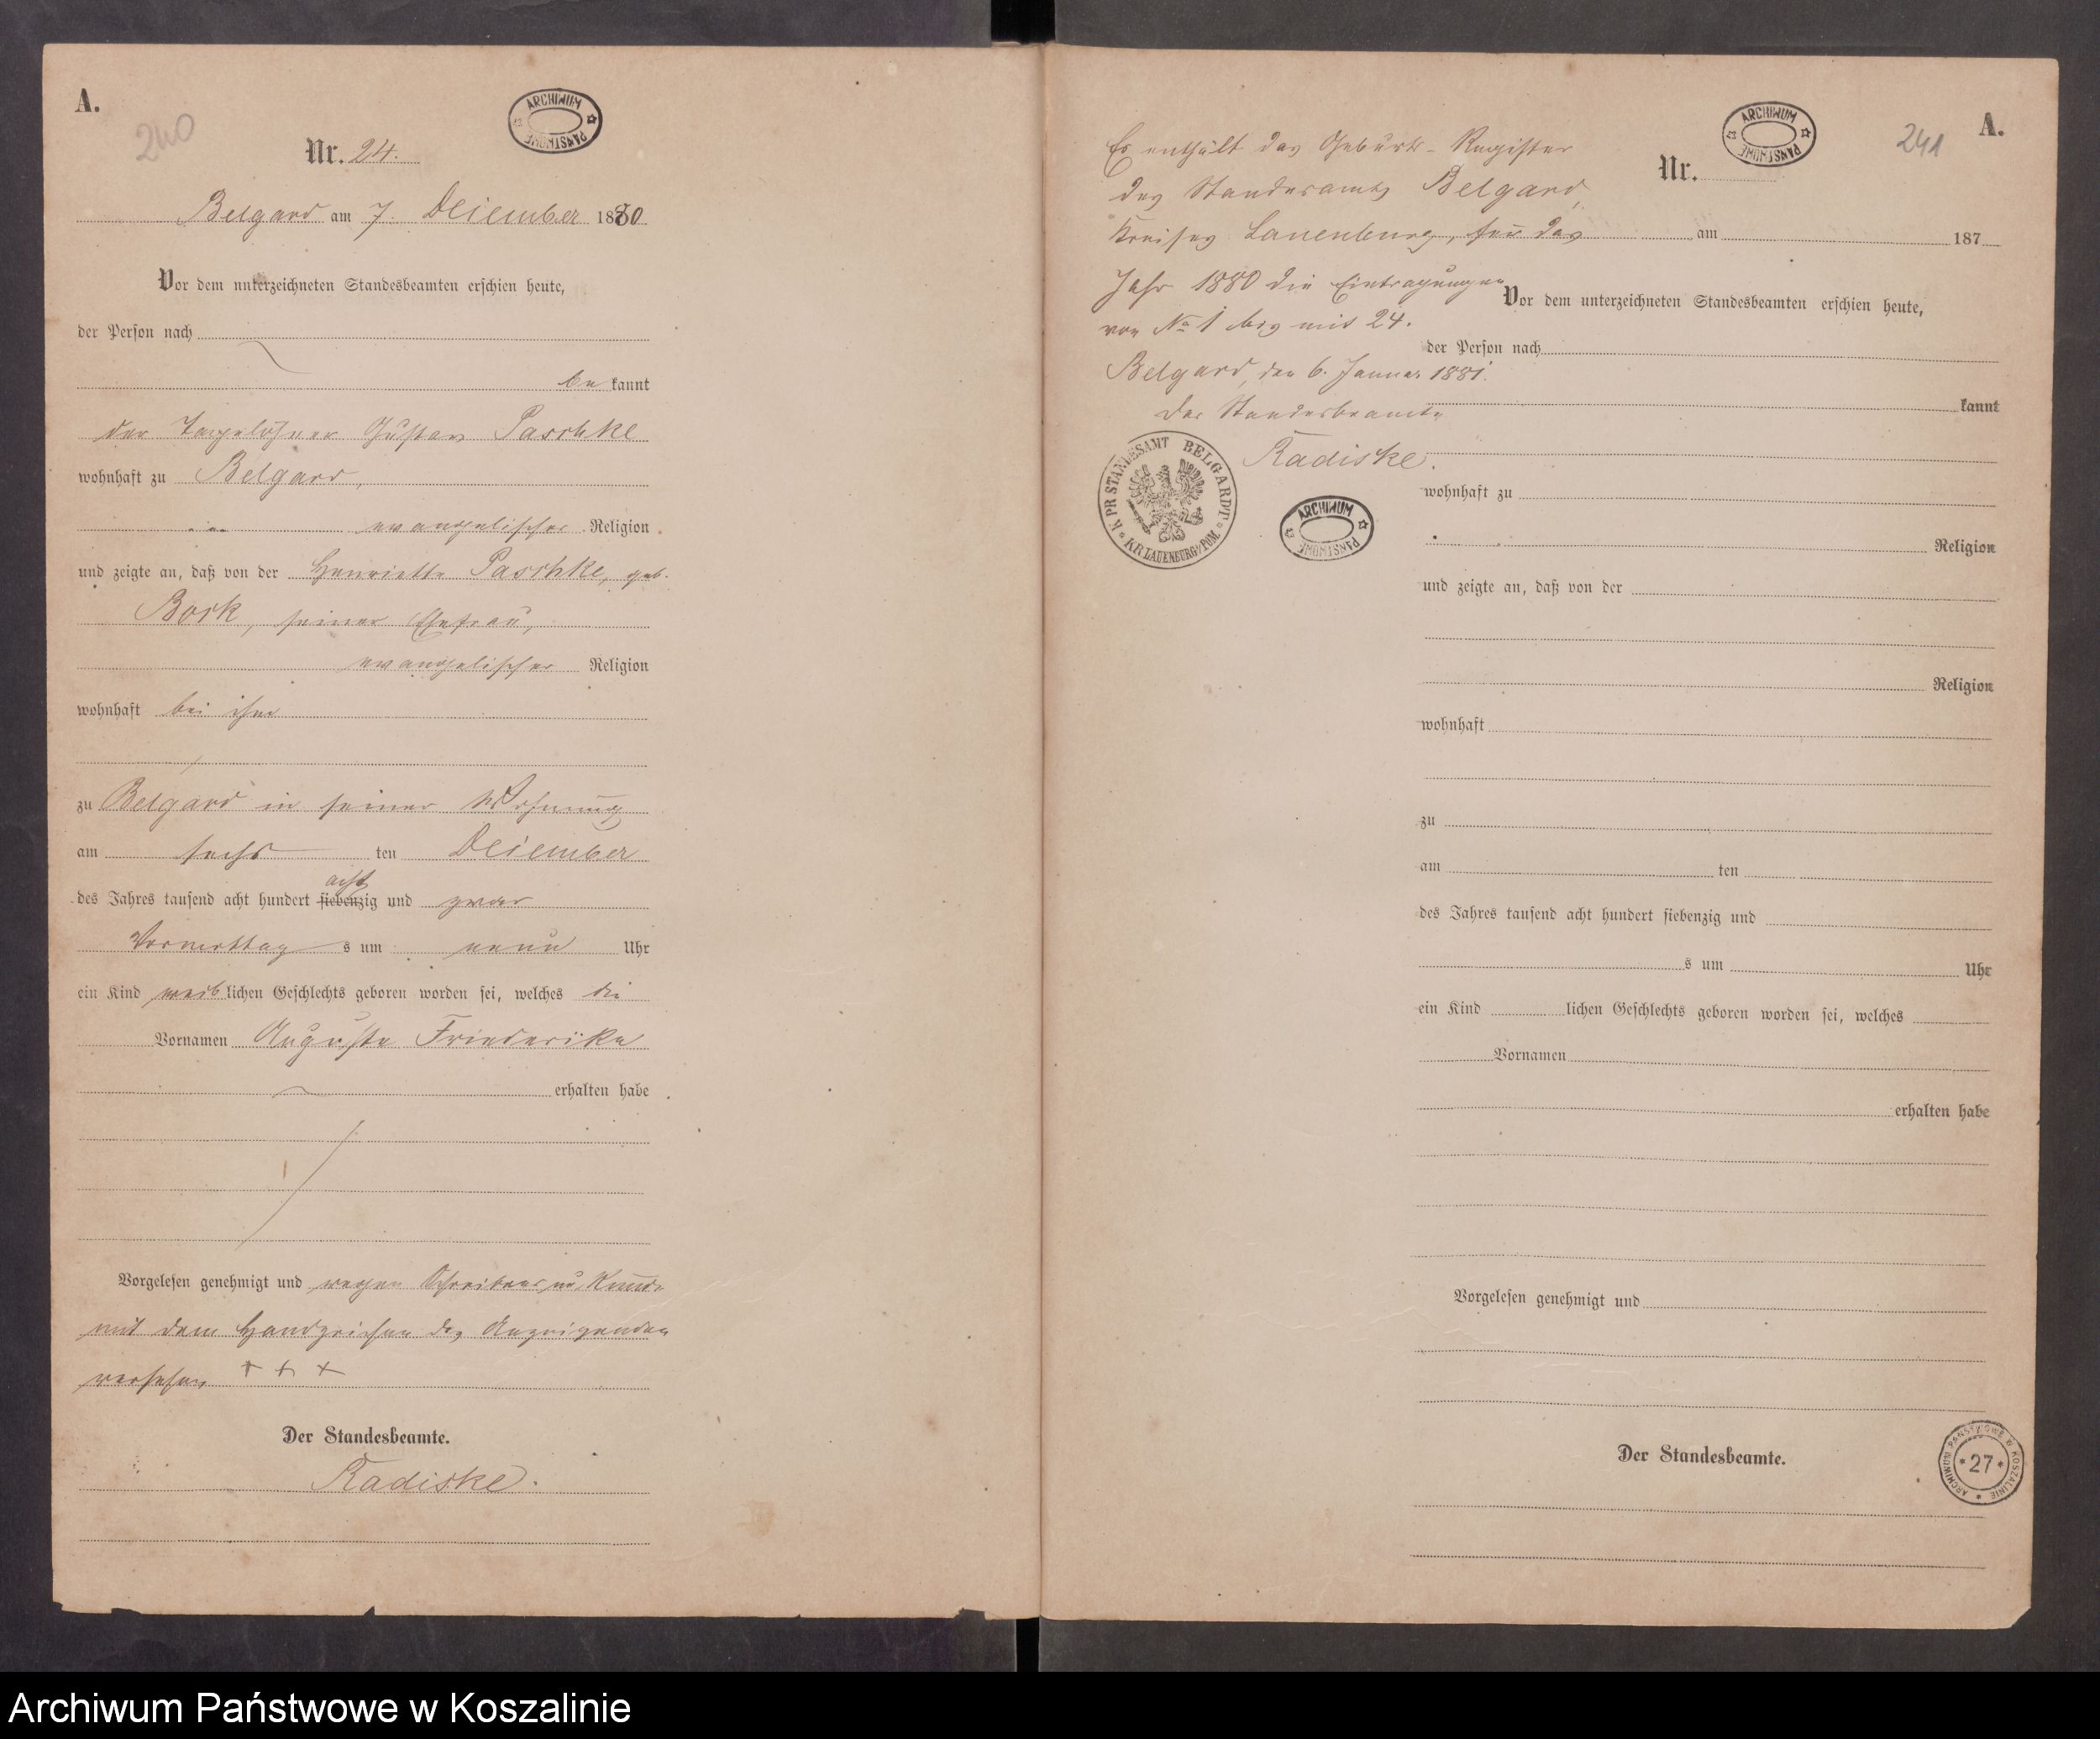 A.
240
ARCHIWUM PAŃSTWOWE
Nr. 24.
Belgard am 7. December 1880
Vor dem unterzeichneten Standesbeamten erschien heute,
der Person nach
be kannt
der Tagelöhner Gustav Paschke
wohnhaft zu Belgard,
evangelischer Religion
und zeigte an, daß von der Henriette Paschke, geb.
Bork, seiner Ehefrau,
evangelischer Religion
wohnhaft bei ihm
zu Belgard in seiner Wohnung
am sechs ten December
des Jahres tausend acht hundert siebenzig und zwar
acht
Vormittag s um neun Uhr
ein Kind weib lichen Geschlechts geboren worden sei, welches die
Vornamen Auguste Friederike
erhalten habe
Vorgelesen genehmigt und wegen Schreibens
mit dem Handzeichen des Anzeigenden
versehen + + +
Der Standesbeamte.
Radiske.
A.
241
ARCHIWUM PAŃSTWOWE
Nr.
Es enthält das Geburts-Register
des Standesamts Belgard,
Kreises Lauenburg, für das
am 187
Jahr 1880 die Eintragungen
Vor dem unterzeichneten Standesbeamten erschien heute,
von No 1 bis mit 24.
der Person nach
Belgard, den 6. Januar 1881.
kannt
Der Standesbeamte
Radiske.
K. PR STANDESAMT BELGARDT
KR. LAUENBURG/POM.
ARCHIWUM PAŃSTWOWE
wohnhaft zu
Religion
und zeigte an, daß von der
Religion
wohnhaft
zu
am ten
des Jahres tausend acht hundert siebenzig und
s um Uhr
ein Kind lichen Geschlechts geboren worden sei, welches
Vornamen
erhalten habe
Vorgelesen genehmigt und
Der Standesbeamte.
ARCHIWUM PAŃSTWOWE W KOSZALINIE
* 27 *
Archiwum Państwowe w Koszalinie